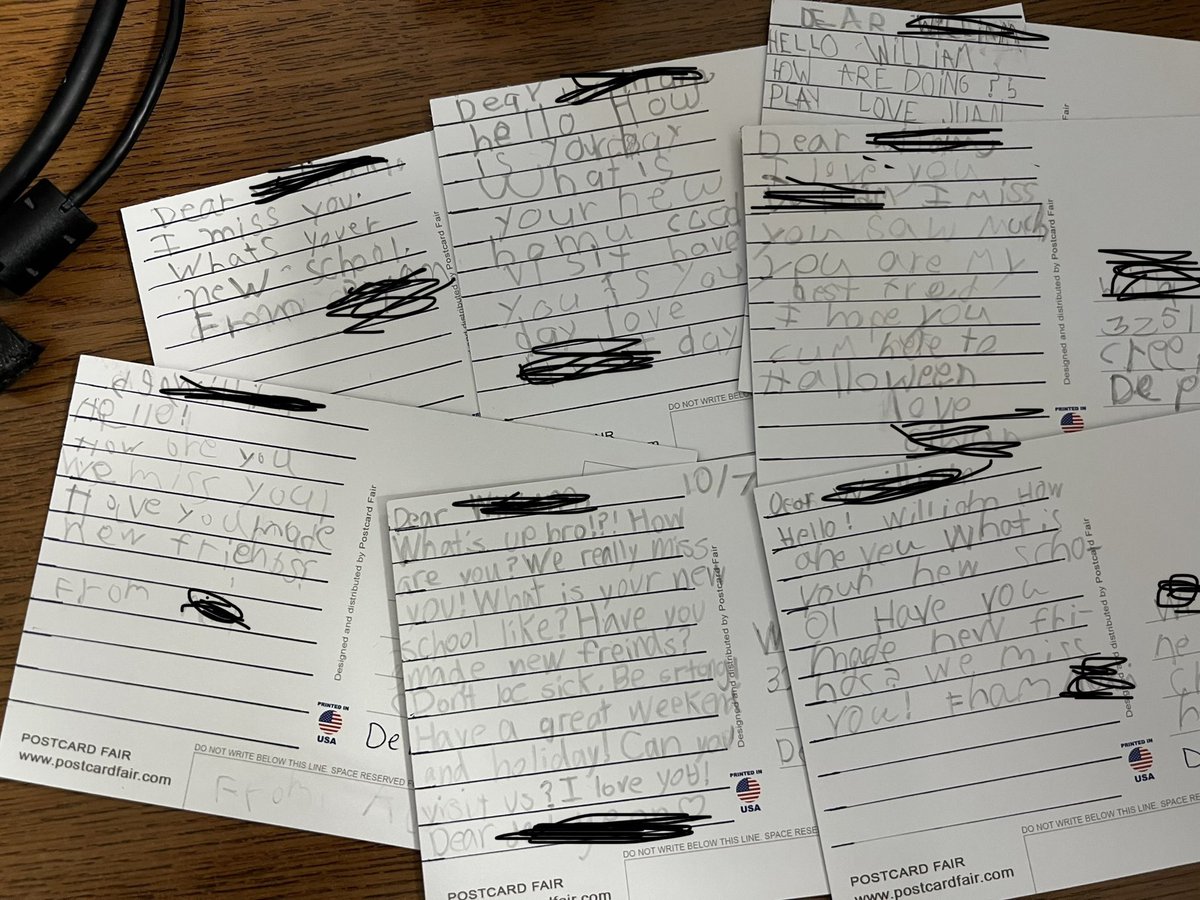 DEAR
HELLO WILLIAM
HOW ARE DOING ?
PLAY LOVE JUAN
Dear
hello How
is your Day
What is
your new
visit have
you is you
day love
day
Dear
I miss you.
Whats yover
new school.
From
Dear
I love you
I miss
you saw much
you are my
best
I hope you
cum here to
Halloween
love
3251
cree
De
Hello!
How are you
We miss you!
Have you made
new
From
De
From
10/7
Dear
What's up bro!?! How
are you? We really miss
you! What is your new
school like? Have you
made new freinds?
Don't be sick. Be
Have a great weeken
and holiday! Can you
visit us? I love you!
Dear
Dear
Hello! William How
are you What is
your new scho
ol Have you
made new fri
nds? we miss
you! Fram
ne
Designed and distributed by Postcard Fair
Designed and distributed by Postcard Fair
Designed and distributed by Postcard Fair
Designed and distributed by Postcard Fair
d distributed by Postcard Fair
Fair
PRINTED IN
USA
PRINTED IN
USA
PRINTED IN
USA
PRINTED IN
POSTCARD FAIR
www.postcardfair.com
DO NOT WRITE BELOW THIS LINE. SPACE RESERVED F
POSTCARD FAIR
DO NOT WRITE BELOW THIS LINE. SPACE RESE
POSTCARD FAIR
www.postcardfair.com
DO NOT WRITE BELOW THIS LINE. SPACE RESERVED
DO NOT WRITE BEL